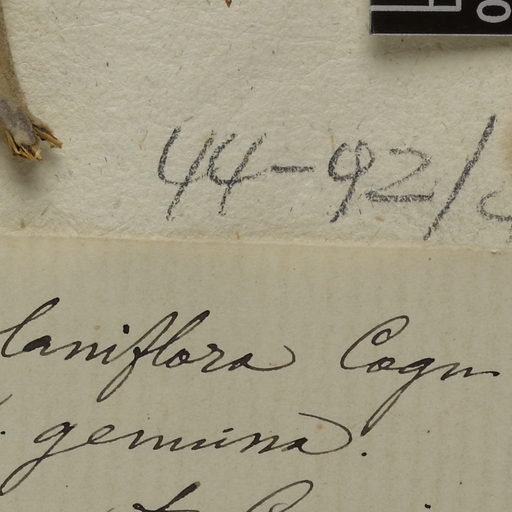 44-92/
laniflora Cogn
genuina.